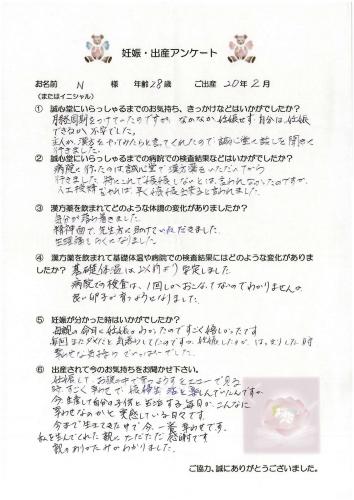 妊娠・出産アンケート
お名前 N 様 年齢 28歳 ご出産 20年 2月
(またはイニシャル)
① 誠心堂にいらっしゃるまでのお気持ち、きっかけなどはいかがでしたか?
月経周期をつけていたのですが、なかなか妊娠せず、自分は妊娠
できるか不安でした。
主人が漢方をやってみたらと言ってくれたので誠心堂に話しを聞きに
行きました。
② 誠心堂にいらっしゃるまでの病院での検査結果などはいかがでしたか?
病院に行ったのは誠心堂で漢方薬をいただいてから
行きました。特にこれで妊娠しないとは言われなかったのですが、
人工授精をすれば早く妊娠出来ると言われました。
③ 漢方薬を飲まれてどのような体調の変化がありましたか?
気分が落ち着きました。
精神面で、先生方に助けていただきました。
生理痛もらくになりました。
④ 漢方薬を飲まれて基礎体温や病院での検査結果にはどのような変化がありましたか?
基礎体温は以前より安定しました
病院での検査は、1回しかおこなってないのでわかりませんが
良い卵子が育つようになりました
⑤ 妊娠が分かった時はいかがでしたか?
母親の命日に妊娠がわかったのですごく嬉しかったです
毎回まだダメだと気落ちしてたのですが、妊娠したのが、はっきりした時
幸せな気持ちでいっぱいでした。
⑥ 出産されて今のお気持ちをお聞かせ下さい。
妊娠して、お腹の中で育つようすをエコーで見る
時すごく幸せで、妊婦生活を楽しんでいたんですが、
今、出産して自分の子供と生活する毎日が、こんなに
幸せなのかと実感している日々です
今まで生きてきた中で今、一番幸せです。
私を産んでくれた親にただただ感謝です
親のありがたみがわかりました
ご協力、誠にありがとうございました。